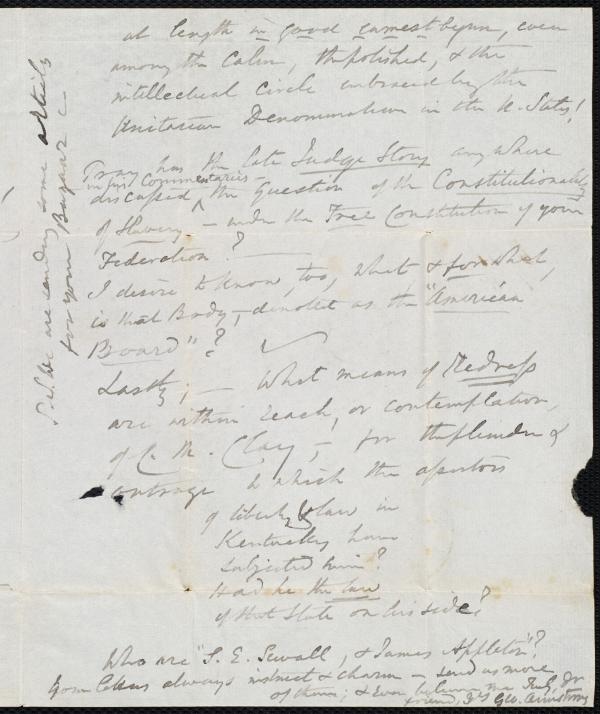 at length in good earnest begun, even
among the Calm, the polished, & the
intellectual circle embraced by the
Unitarian Denomination in the U. States!
Pray has the late Judge Story anywhere
in his Commentaries –
discussed ^ the Question of the Constitutionality
of Slavery – under the Free Constitution of your
Federation? –
I desire to know, too, what, & for what,
is that Body, – denoted as the "American
Board"?
Lastly; – What means of Redress
are within reach, or contemplation,
of C. M. Clay, – for the plunder &
outrage to which the
of liberty & law in
Kentucky have
subjected him?
Had he the law
of that State on his side?
Who are "S. E. Sewall, & James Appleton"?
Your letters always instruct & charm – send us more
of them; & Ever believe me Rev'd Dr
friend, Geo. Armstrong
P.S. We are sending some articles
for your Bazaar